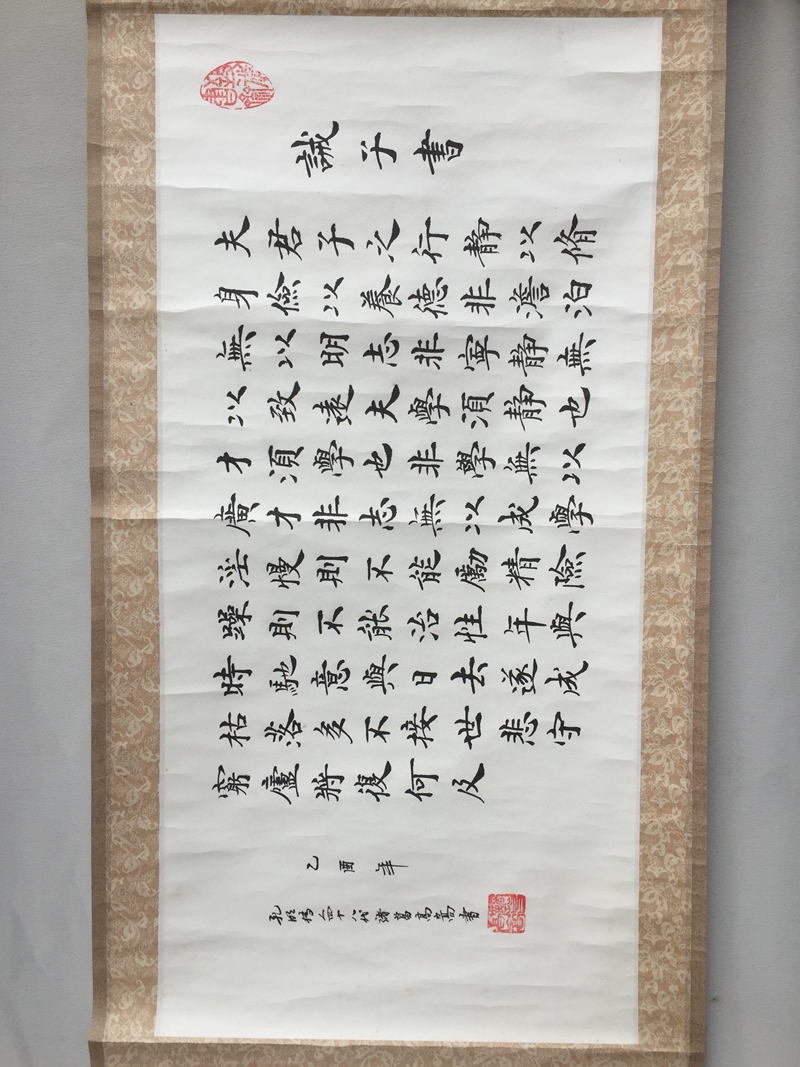 誡子書
夫君子之行静以脩
身儉以養德非澹泊
無以明志非寧静無
以致遠夫學須静也
才須學也非學無以
廣才非志無以成學
淫慢則不能勵精險
躁則不能治性年與
時馳意與日去遂成
枯落多不接世悲守
窮廬將復何及
乙酉年
孔明傳人四十八代諸葛高書